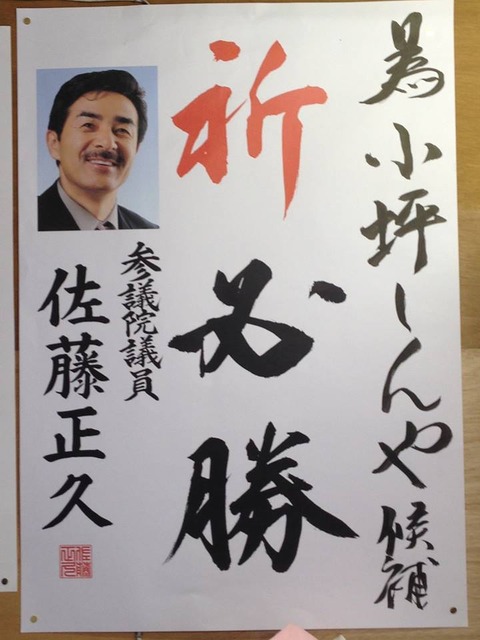 為小坪しんや候補
祈必勝
参議院議員
佐藤正久